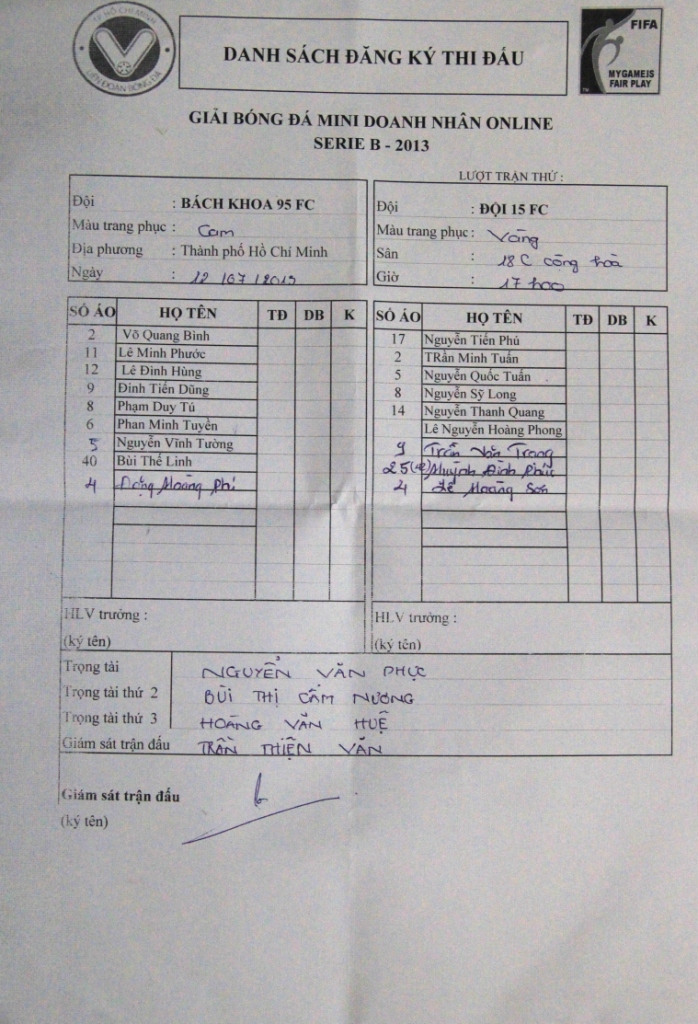 TP HỒ CHÍ MINH
LIÊN ĐOÀN BÓNG ĐÁ
DANH SÁCH ĐĂNG KÝ THI ĐẤU
FIFA
MYGAMEIS
FAIR PLAY
GIẢI BÓNG ĐÁ MINI DOANH NHÂN ONLINE
SERIE B - 2013
LƯỢT TRẬN THỨ :
Đội : BÁCH KHOA 95 FC
Màu trang phục : Cam
Địa phương : Thành phố Hồ Chí Minh
Ngày : 12 / 07 / 2013
Đội : ĐỘI 15 FC
Màu trang phục : Vàng
Sân : 18 C cộng hoà
Giờ : 17 h00
SỐ ÁO HỌ TÊN TĐ DB K
2 Võ Quang Bình
11 Lê Minh Phước
12 Lê Đình Hùng
9 Đinh Tiến Dũng
8 Phạm Duy Tú
6 Phan Minh Tuyền
5 Nguyễn Vĩnh Tường
40 Bùi Thế Linh
4 Đặng Hoàng Phi
SỐ ÁO HỌ TÊN TĐ DB K
17 Nguyễn Tiến Phú
2 TRần Minh Tuấn
5 Nguyễn Quốc Tuấn
8 Nguyễn Sỹ Long
14 Nguyễn Thanh Quang
Lê Nguyễn Hoàng Phong
9 Trần Văn Trang
25 Huỳnh Đình Phúc
4 Lê Hoàng Sơn
HLV trưởng :
(ký tên)
HLV trưởng :
(ký tên)
Trọng tài NGUYỄN VĂN PHỤC
Trọng tài thứ 2 BÙI THỊ CẨM NƯƠNG
Trọng tài thứ 3 HOÀNG VĂN HUỆ
Giám sát trận đấu TRẦN THIỆN VĂN
Giám sát trận đấu
(ký tên)